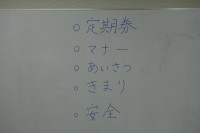 ○ 定期券
○ マナー
○ あいさつ
○ きまり
○ 安全